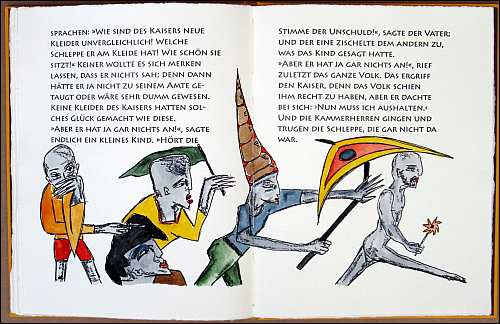 sprachen: »Wie sind des Kaisers neue
Kleider unvergleichlich! Welche
Schleppe er am Kleide hat! Wie schön sie
sitzt!« Keiner wollte es sich merken
lassen, dass er nichts sah; denn dann
hätte er ja nicht zu seinem Amte ge-
taugt oder wäre sehr dumm gewesen.
Keine Kleider des Kaisers hatten sol-
ches Glück gemacht wie diese.
»Aber er hat ja gar nichts an!«, sagte
endlich ein kleines Kind. »Hört die
Stimme der Unschuld!«, sagte der Vater;
und der eine zischelte dem andern zu,
was das Kind gesagt hatte.
»Aber er hat ja gar nichts an!«, rief
zuletzt das ganze Volk. Das ergriff
den Kaiser, denn das Volk schien
ihm recht zu haben, aber er dachte
bei sich: ›Nun muss ich aushalten.‹
Und die Kammerherren gingen und
trugen die Schleppe, die gar nicht da
war.